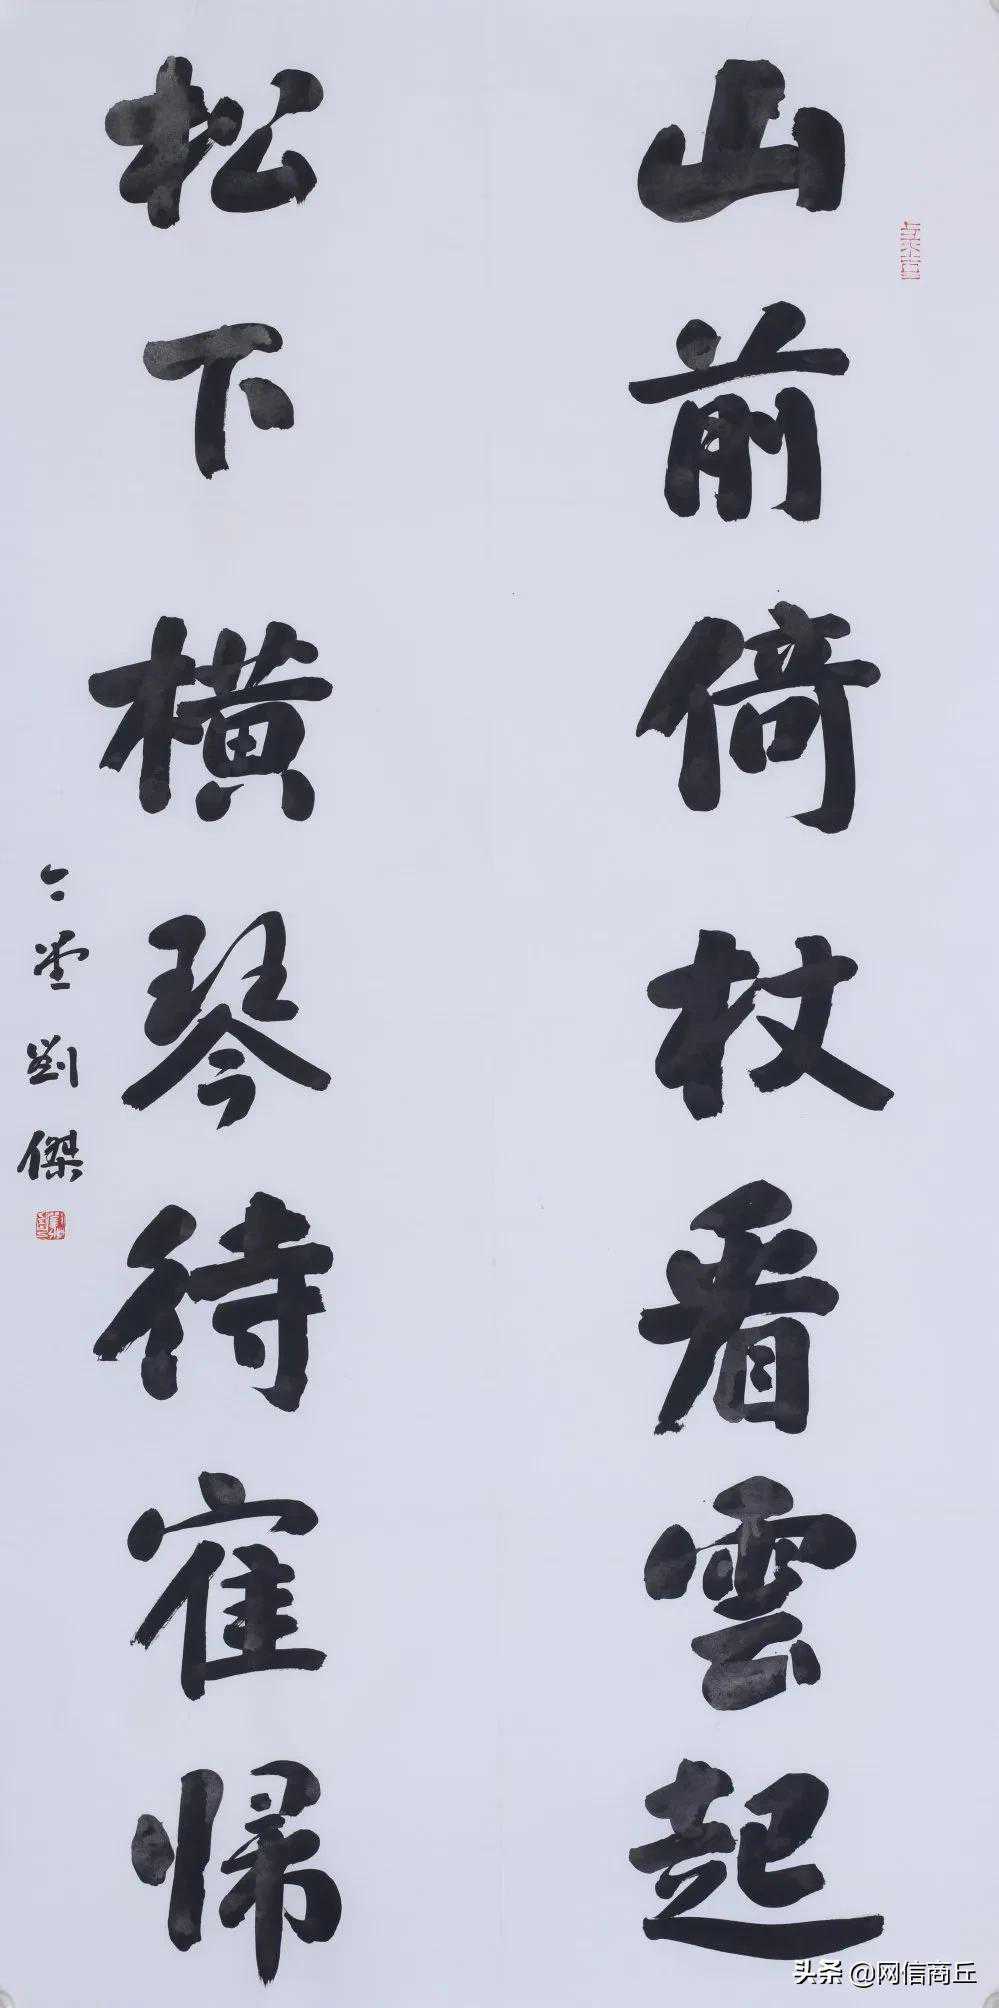 山前倚杖看雲起
松下横琴待寉歸
劉傑
头条 @网信商丘